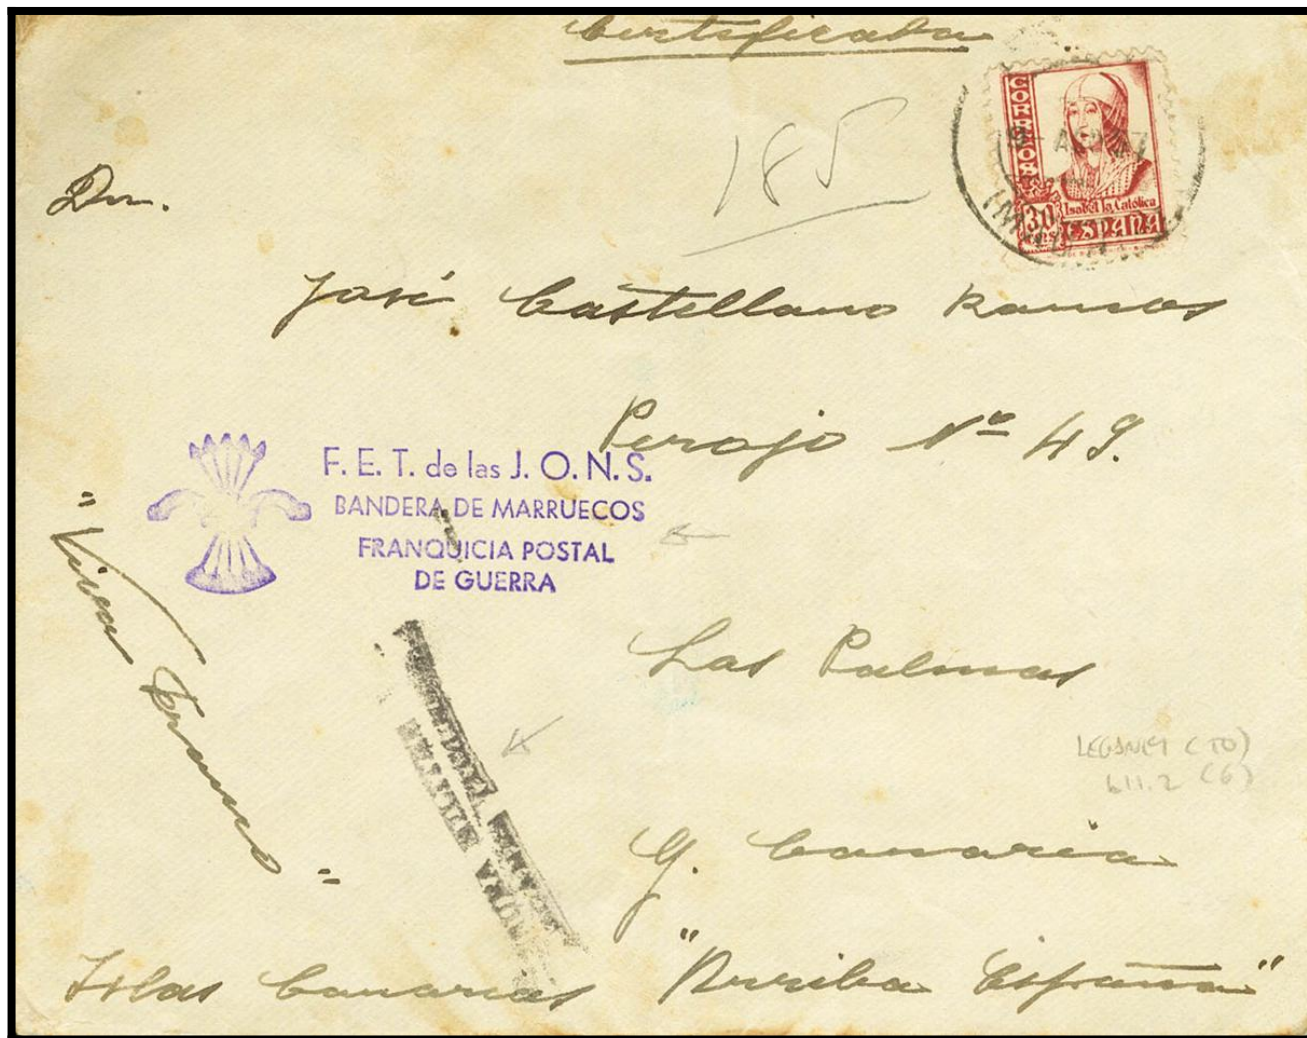 Certificada
185
CORREOS
30
Isabel la Católica
ESPAÑA
Dn.
José Castellano Ramos
Perojo Nº 49.
F. E. T. de las J. O. N. S.
BANDERA DE MARRUECOS
FRANQUICIA POSTAL
DE GUERRA
"Viva Franco"
Las Palmas
G. Canaria
Islas Canarias "Arriba España"